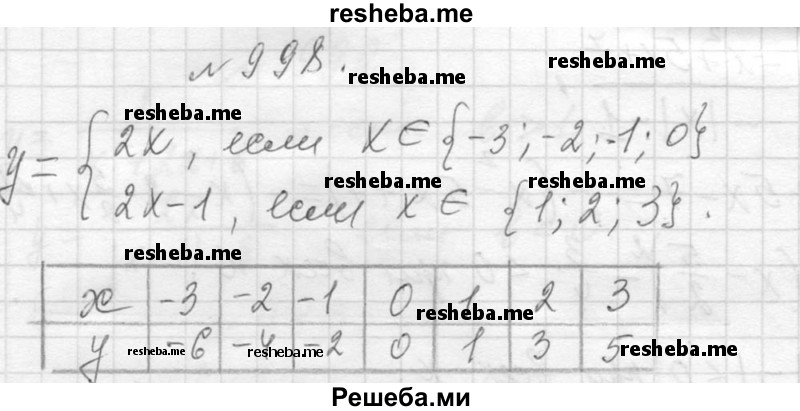 resheba.me
№ 998.
resheba.me
resheba.me
resheba.me
y = { 2x, если x ∈ {-3; -2; -1; 0}
2x-1, если x ∈ {1; 2; 3}.
resheba.me
resheba.me
resheba.me
x -3 -2 -1 0 1 2 3
resheba.me
y -6 -4 -2 0 1 3 5
resheba.me
resheba.me
resheba.me
Решеба.ми